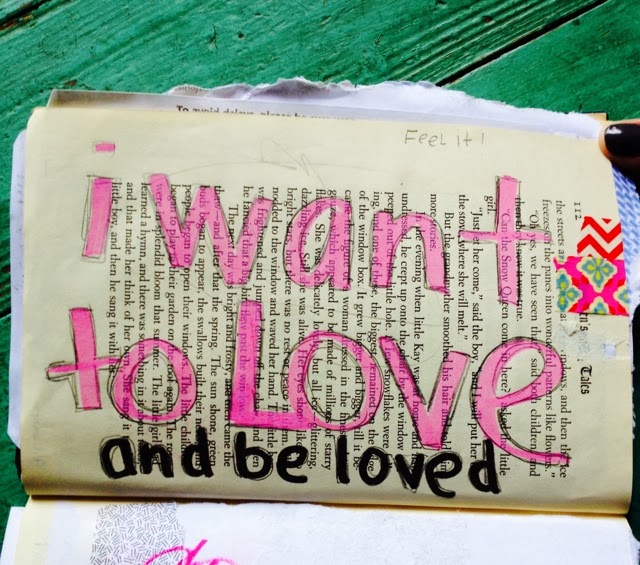 To avoid delays, please be
Feel it!
i want
to Love
and be loved
112
Tales
the streets and then the ice
freezes on the panes into wonderful patterns like flowers."
"Oh yes, we have seen that," said both children, and
it was true.
"Can the Snow Queen come in here?" asked the little
girl.
"Just let her come," said the boy, "and I will put her
the stove, where she will melt."
But the grandmother smoothed his hair and told him
more stories.
evening when little Kay was at home and
undressed, he crept up on the chair by the window
peeped out of the little hole. snowflakes were
ing, and one of these, the biggest, remained on the edge
of the window box. It grew bigger and bigger, till it be-
came the figure of a woman dressed in the
which appeared to be made of millions of starry
She was delicately lovely, but all ice, glittering,
dazzling Still she was alive. Her eyes shone like
bright stars, but there was no rest or peace in them.
nodded to the window and waved her hand. The little boy
was frightened and jumped down off the chair, and then
he fancied that a big bird flew past the window.
The next day was bright and frosty, and then came the
thaw—and after that the spring. The sun shone, green
buds began to appear, the swallows built their nests
people began to open their windows. The little children
began to play in their garden on the roof again. The roses
were in splendid bloom that summer. The little girl
learned a hymn, and there was something in it about
and that made her think of her own. She sang it
little boy, and then he sang it with her.